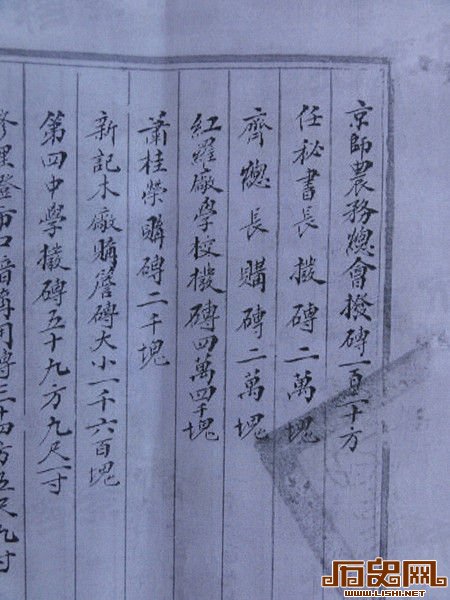 京師農務總會撥磚一百一十方
任秘書長撥磚二萬塊
齊總長購磚二萬塊
紅羅廠學校撥磚四萬四千塊
蕭桂榮購磚二千塊
新記木廠購舊磚大小一千六百塊
第四中學撥磚五十九方九尺一寸
修理登市口音溝用磚三十四方五尺九寸
历史网
WWW.LISHI.NET